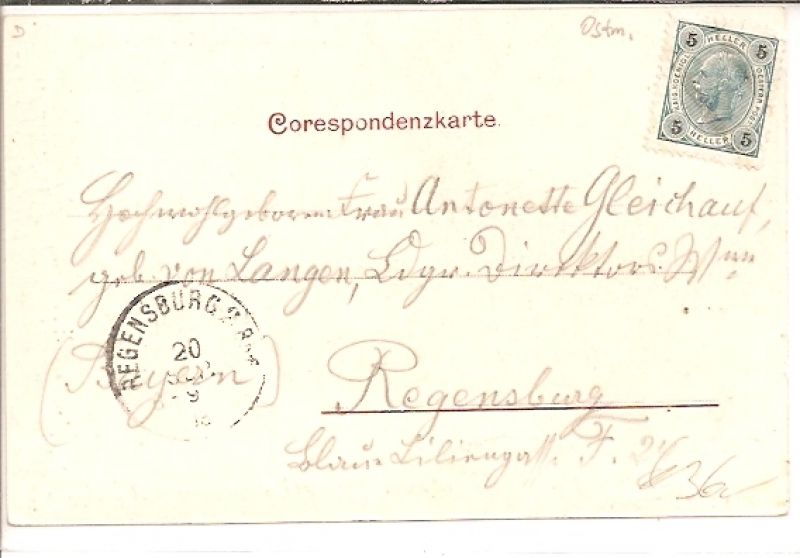 D
Ostm.
5 HELLER 5
KAIS. KOENIGL. OESTERR. POST
5 HELLER 5
Corespondenzkarte.
Hochwohlgeboren Frau Antonette Gleichauf,
geb. von Langen, Ldgr. Direktors
REGENSBURG
20
9
(Bayern)
Regensburg
blaue Liliengasse F.